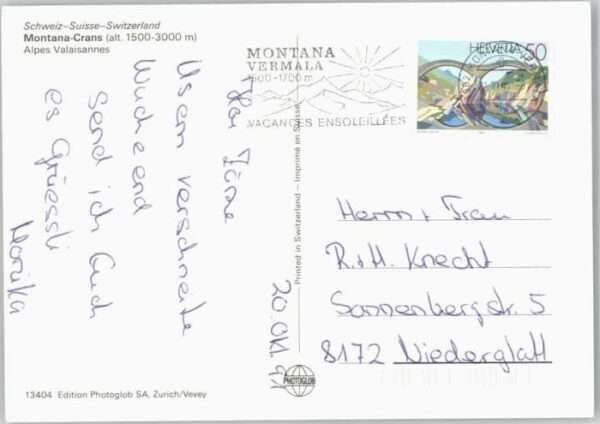 Schweiz–Suisse–Switzerland
Montana-Crans (alt. 1500-3000 m)
Alpes Valaisannes
MONTANA
VERMALA
1500-1700 m
VACANCES ENSOLEILLÉES
HELVETIA 50
20. Okt 91
Usem verschneite
Wucheend
send ich Euch
es Grüessli
Monika
Printed in Switzerland – Imprimé en Suisse
Herrn + Frau
R. + H. Knecht
Sonnenbergstr. 5
8172 Niederglatt
PHOTOGLOB
13404 Edition Photoglob SA, Zurich/Vevey